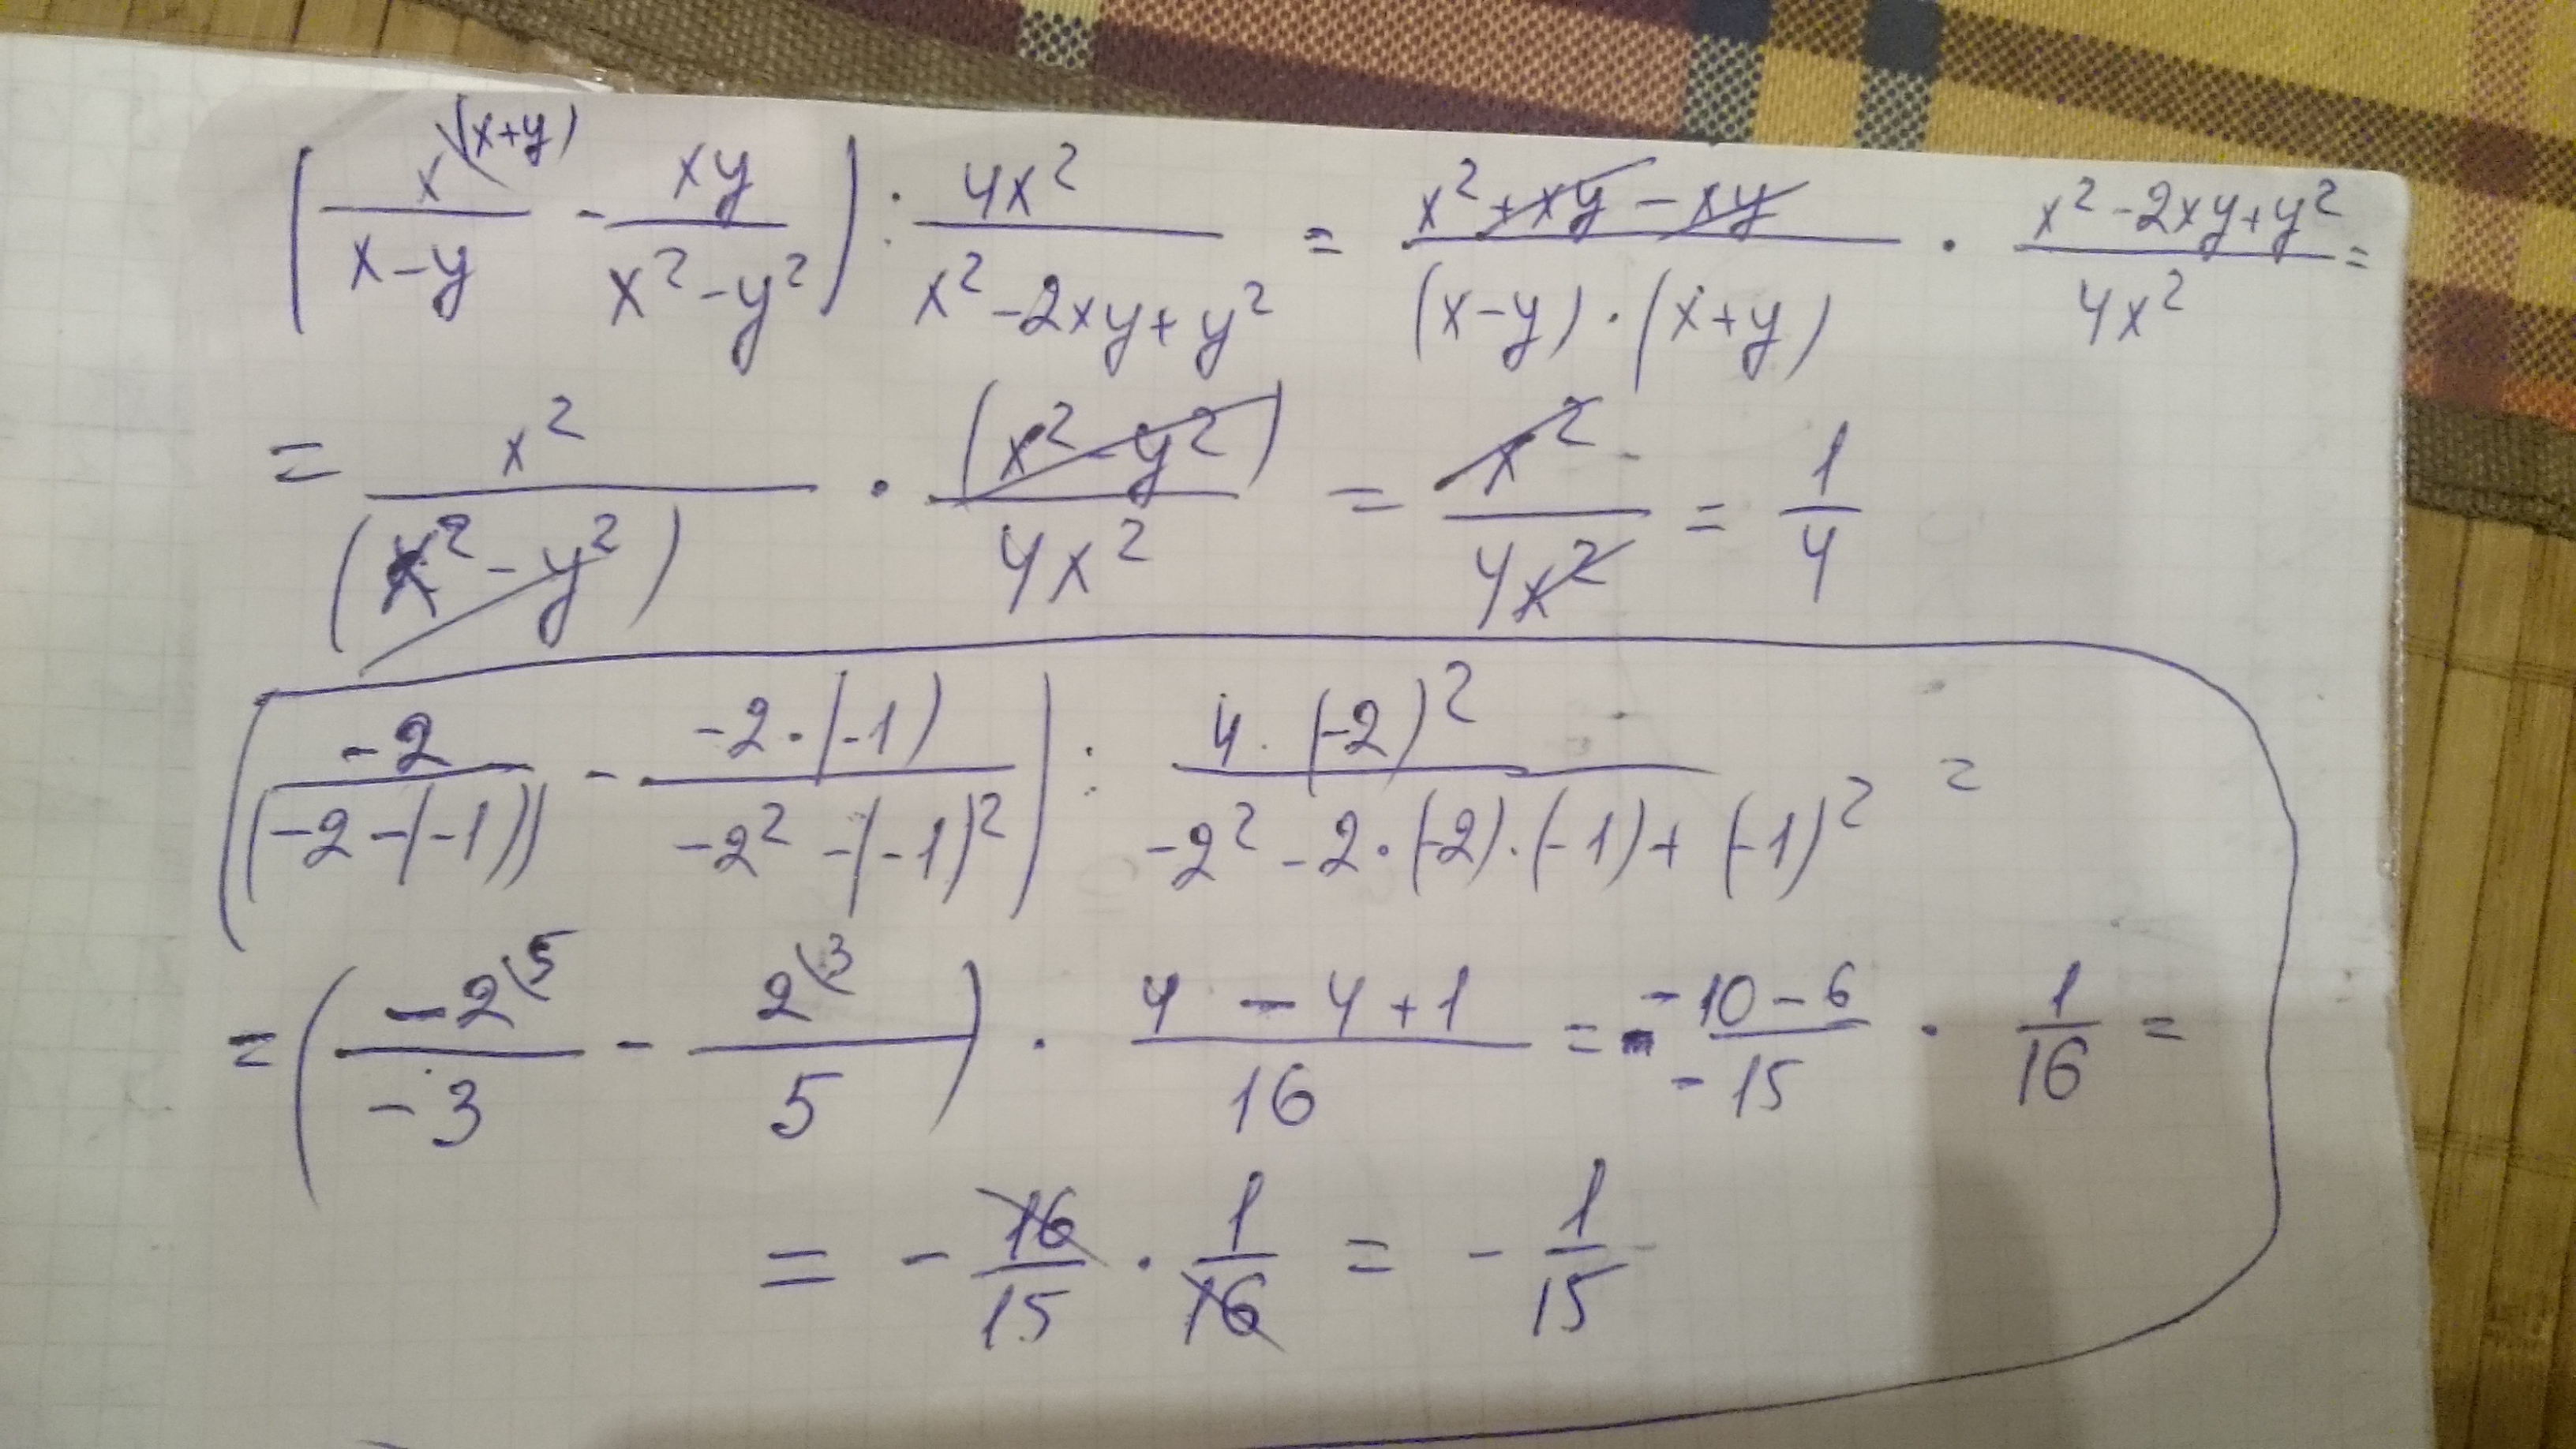 (x^(x+y)/(x-y) - xy/(x²-y²)) : 4x²/(x²-2xy+y²) = (x²+xy-xy)/((x-y)·(x+y)) · (x²-2xy+y²)/4x² =
= x²/(x²-y²) · (x²-y²)/4x² = x²/4x² = 1/4
(-2/(-2-(-1)) - -2·(-1)/(-2²-(-1)²)) : 4·(-2)²/(-2²-2·(-2)·(-1)+(-1)²) =
= (-2^(5/-3 - 2^(3/5) · (4-4+1)/16 = (-10-6)/-15 · 1/16 =
= -16/15 · 1/16 = -1/15